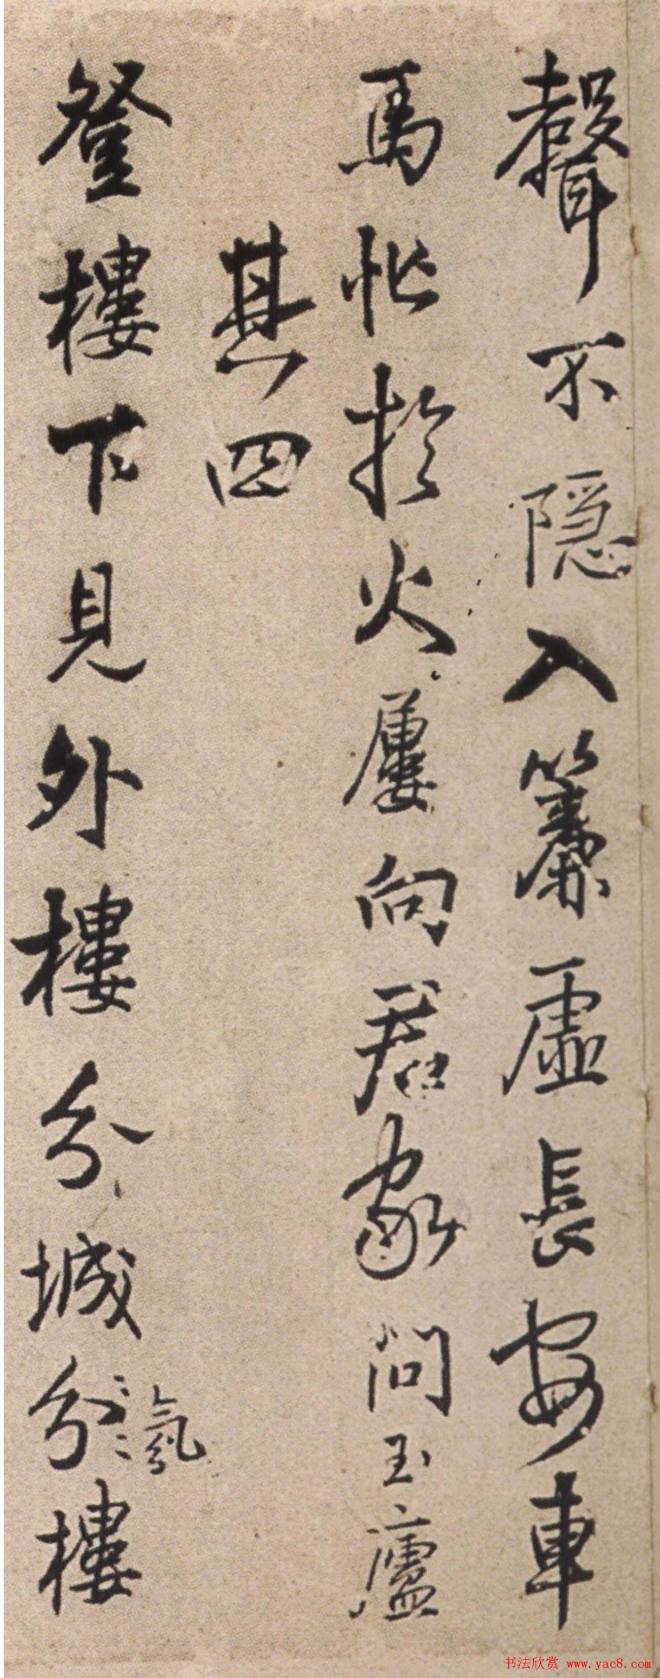 聲不隱入簾虛長安車
馬忙於火屢向君家問玉廬
其四
登樓下見外樓分城分樓
氛
书法欣赏 www.yac8.com